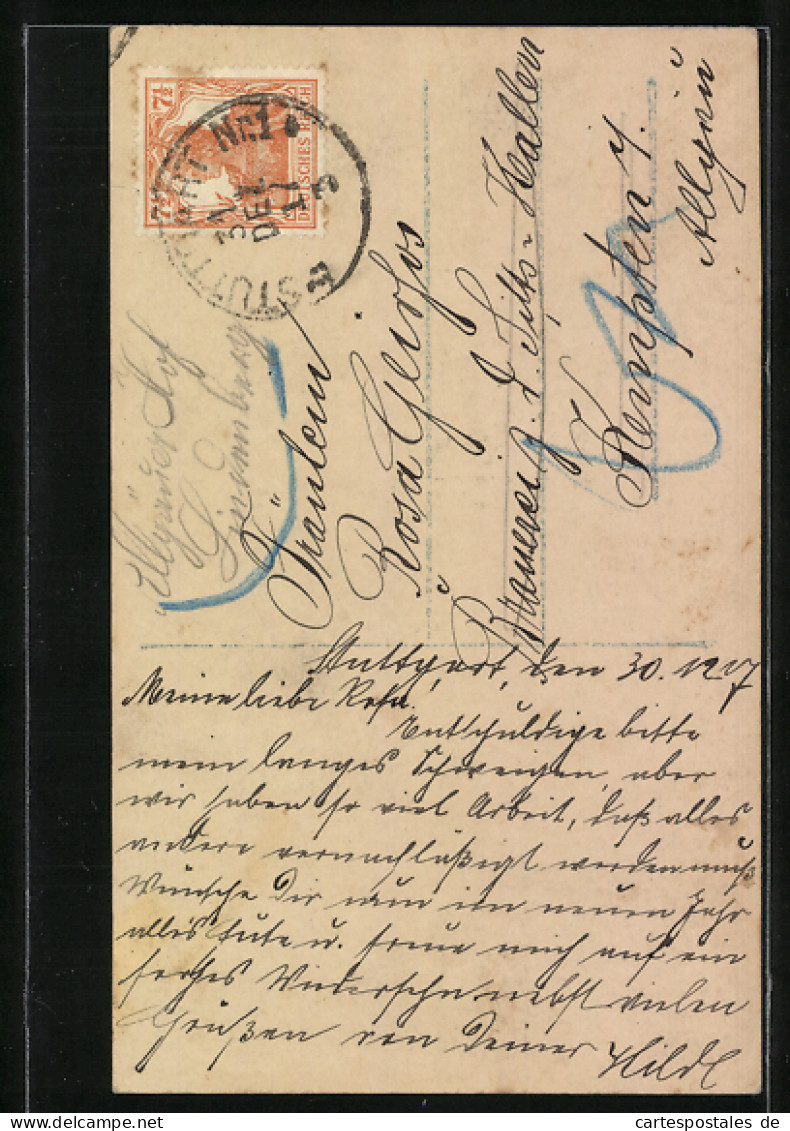 7½ 7½
DEUTSCHES REICH
STUTTGART Nr. 1
31
DEZ
17
Allgäuer Hof
Fräulein
Rosa
Brauerei z. d.
Kempten i.
Allgäu
Stuttgart, den 30.12.17
Meine liebe Rosa.
Entschuldige bitte
mein langes Schweigen, aber
wir haben so viel Arbeit, daß alles
andere vernachläßigt werden muß
Wünsche Dir nun im neuen Jahr
alles Gute u. freue mich auf ein
frohes Wiedersehn nebst vielen
Grüßen von Deiner Hilde
cartespostales de delcampe.net